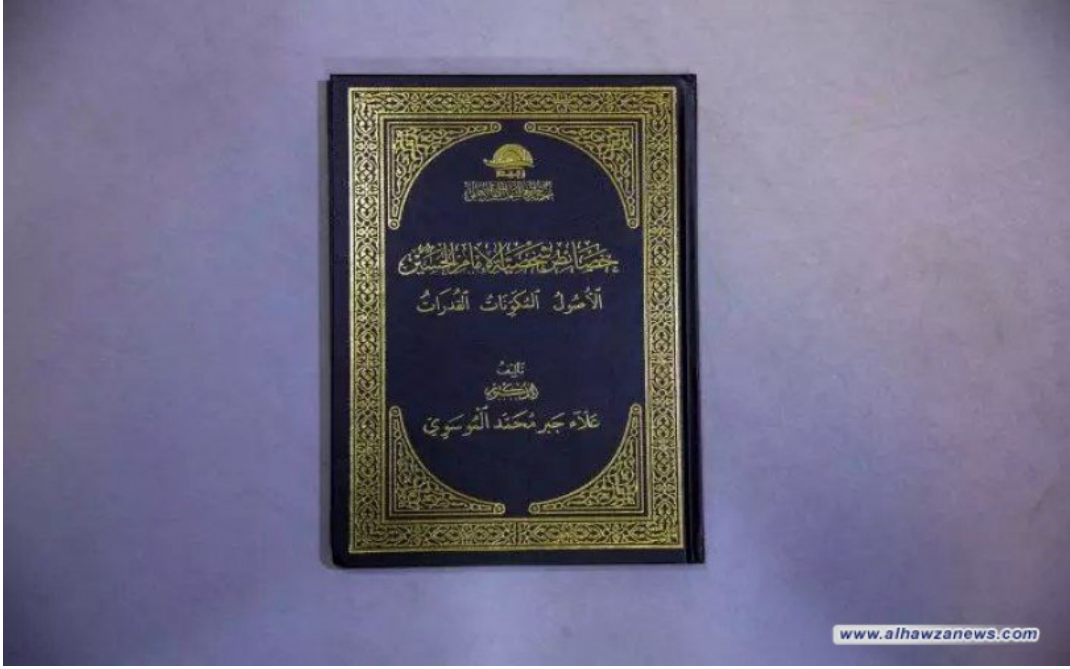 خصائص شخصية الإمام الحسين
الأُصُولُ المُكَوِّنَاتُ القُدرَاتُ
تَأليفُ
الدكتور
عَلَاء جَبر مُحَمَّد المُوسَوِي
www.alhawzanews.com